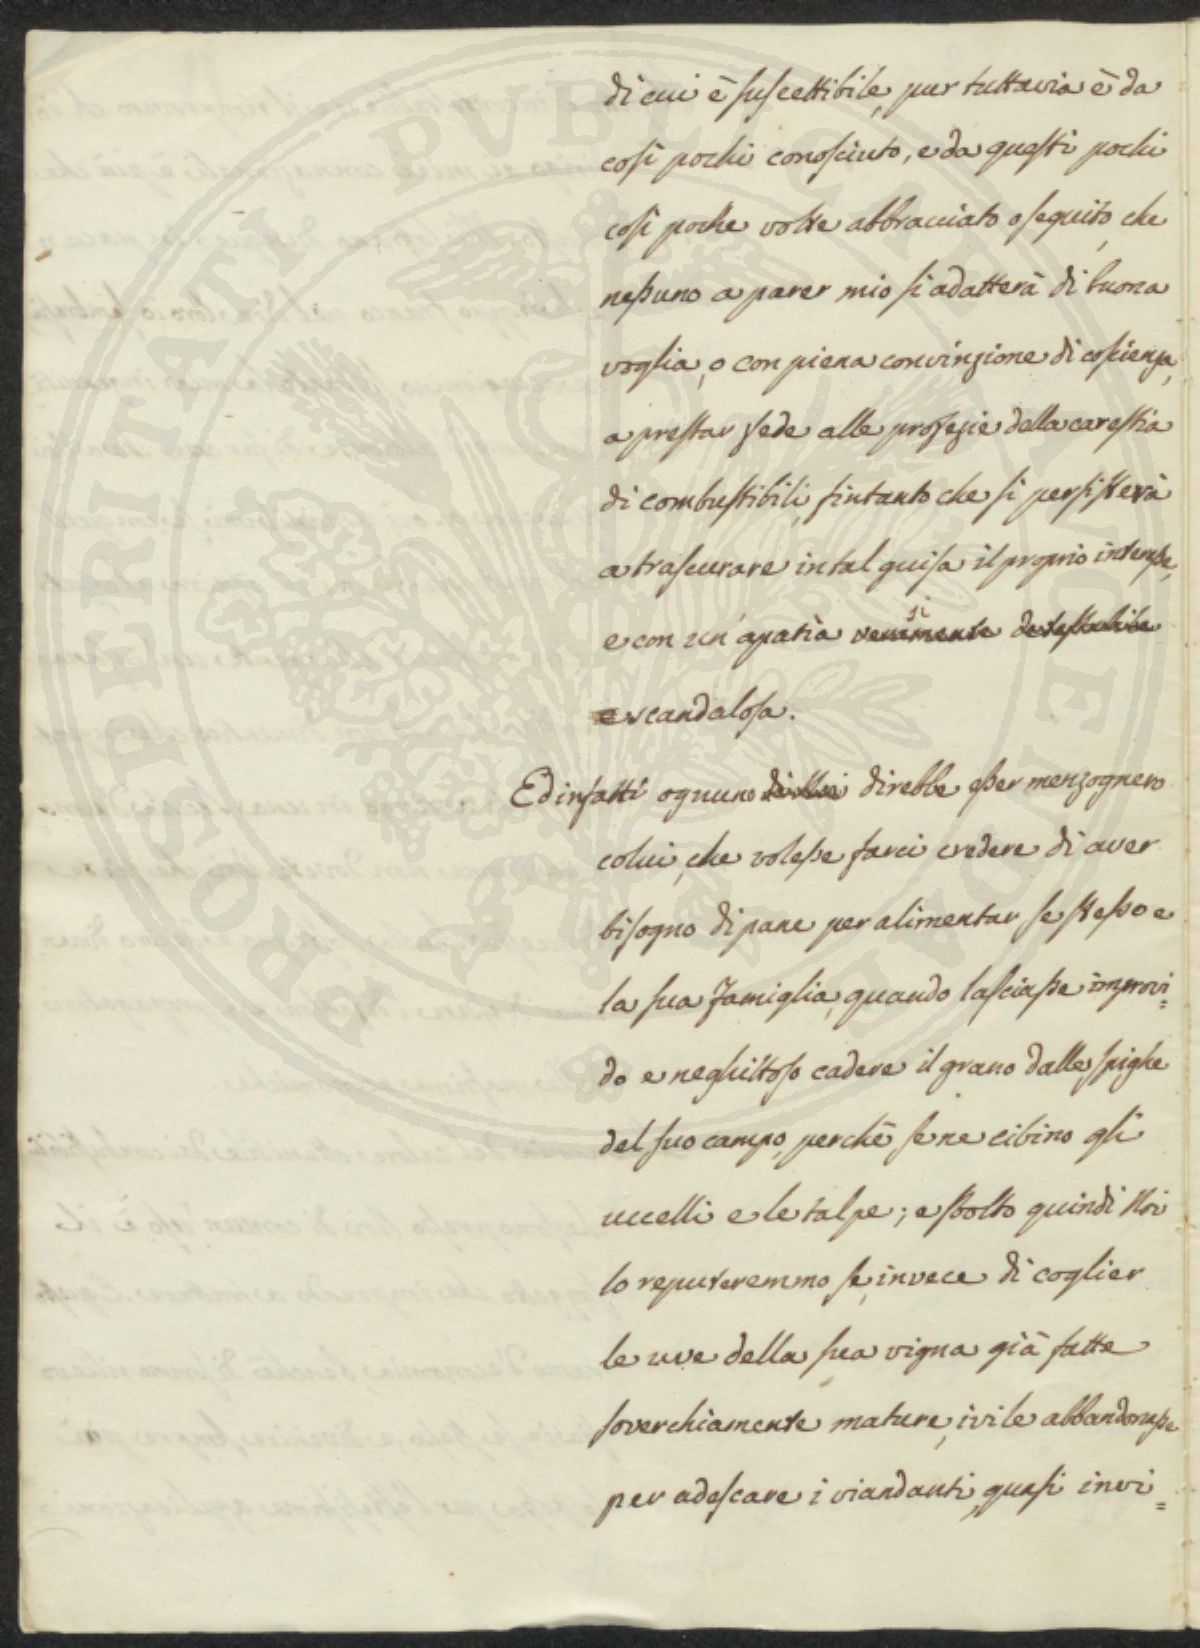 di cui è suscettibile, pur tuttavia è da
così pochi conosciuto, e da questi pochi
così poche volte abbracciato o seguito, che
nessuno a parer mio si adatterà di buona
voglia, o con piena convinzione di coscienza,
a prestar fede alle profezie della carestia
di combustibili, fintanto che si persisterà
a trascurare in tal guisa il proprio interesse,
e con un' apatia sì veramente detestabile
e scandalosa.
Ed infatti ognuno direbbe esser menzognero
colui, che volesse farci credere di aver
bisogno di pane per alimentar se stesso e
la sua famiglia, quando lasciasse improvi=
do e neghittoso cadere il grano dalle spighe
del suo campo, perchè se ne cibino gli
uccelli e le talpe; e stolto quindi Noi
lo reputeremmo se, invece di coglier
le uve della sua vigna già fatte
soverchiamente mature, ivi le abbandonasse
per adescare i viandanti, quasi invi=
PROSPERITATI PVBLICAE AVGENDAE